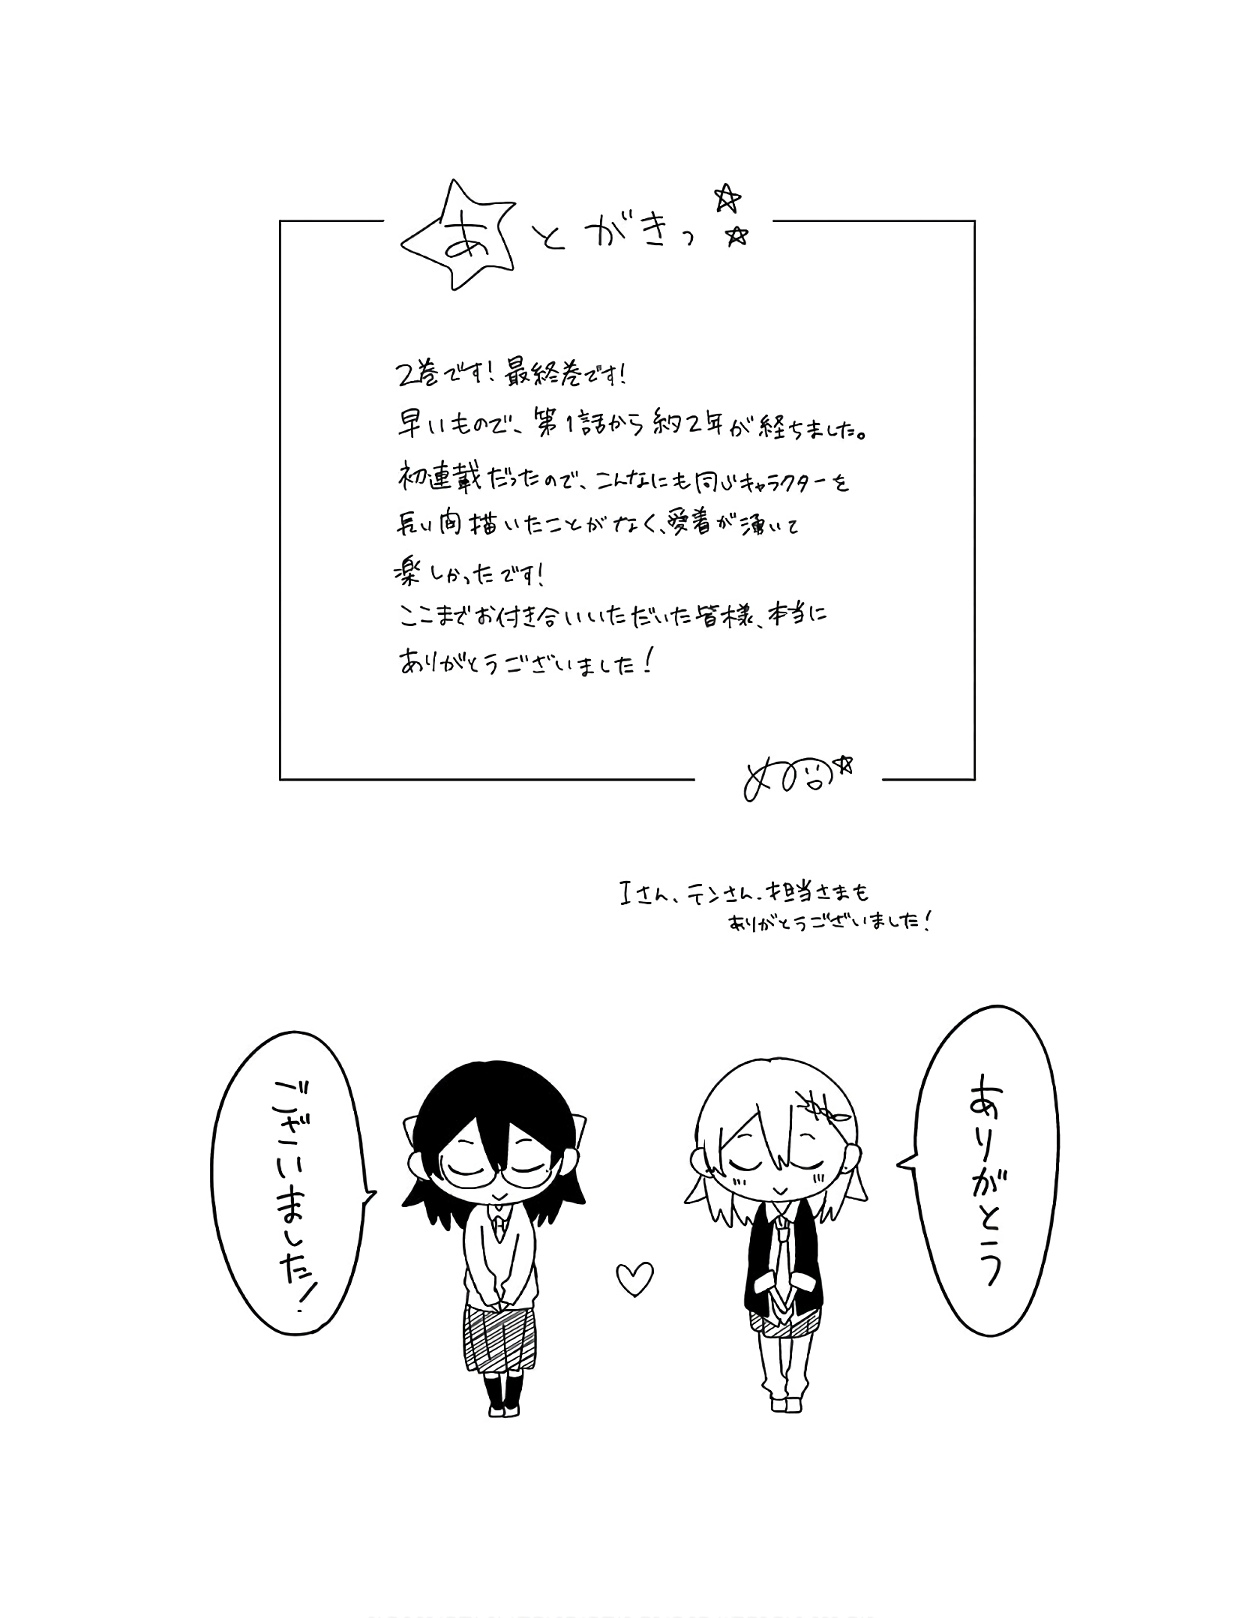 あとがきっ
2巻です!最終巻です!
早いもので、第1話から約2年が経ちました。
初連載だったので、こんなにも同じキャラクターを
長い間描いたことがなく、愛着が湧いて
楽しかったです!
ここまでお付き合いいただいた皆様、本当に
ありがとうございました!
Iさん、テンさん、担当さまも
ありがとうございました!
ありがとう
ございました!